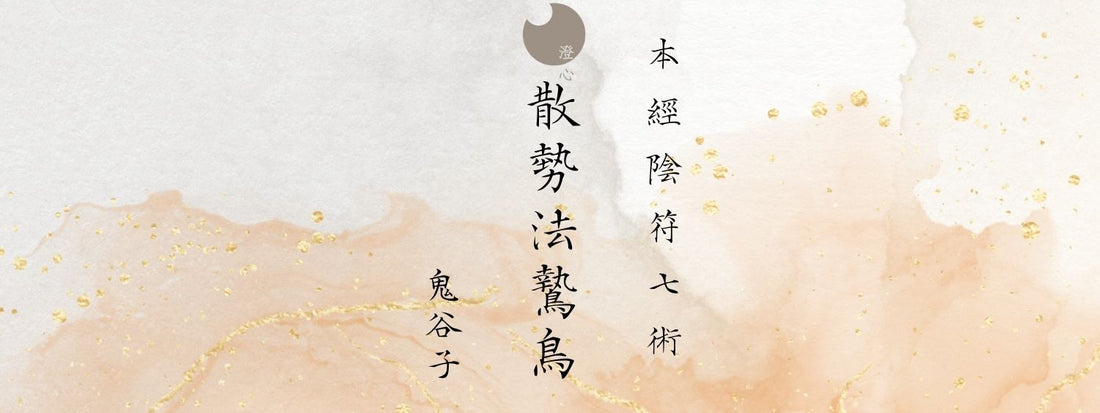 本經陰符七術
澄心
散勢法鷙鳥
鬼谷子